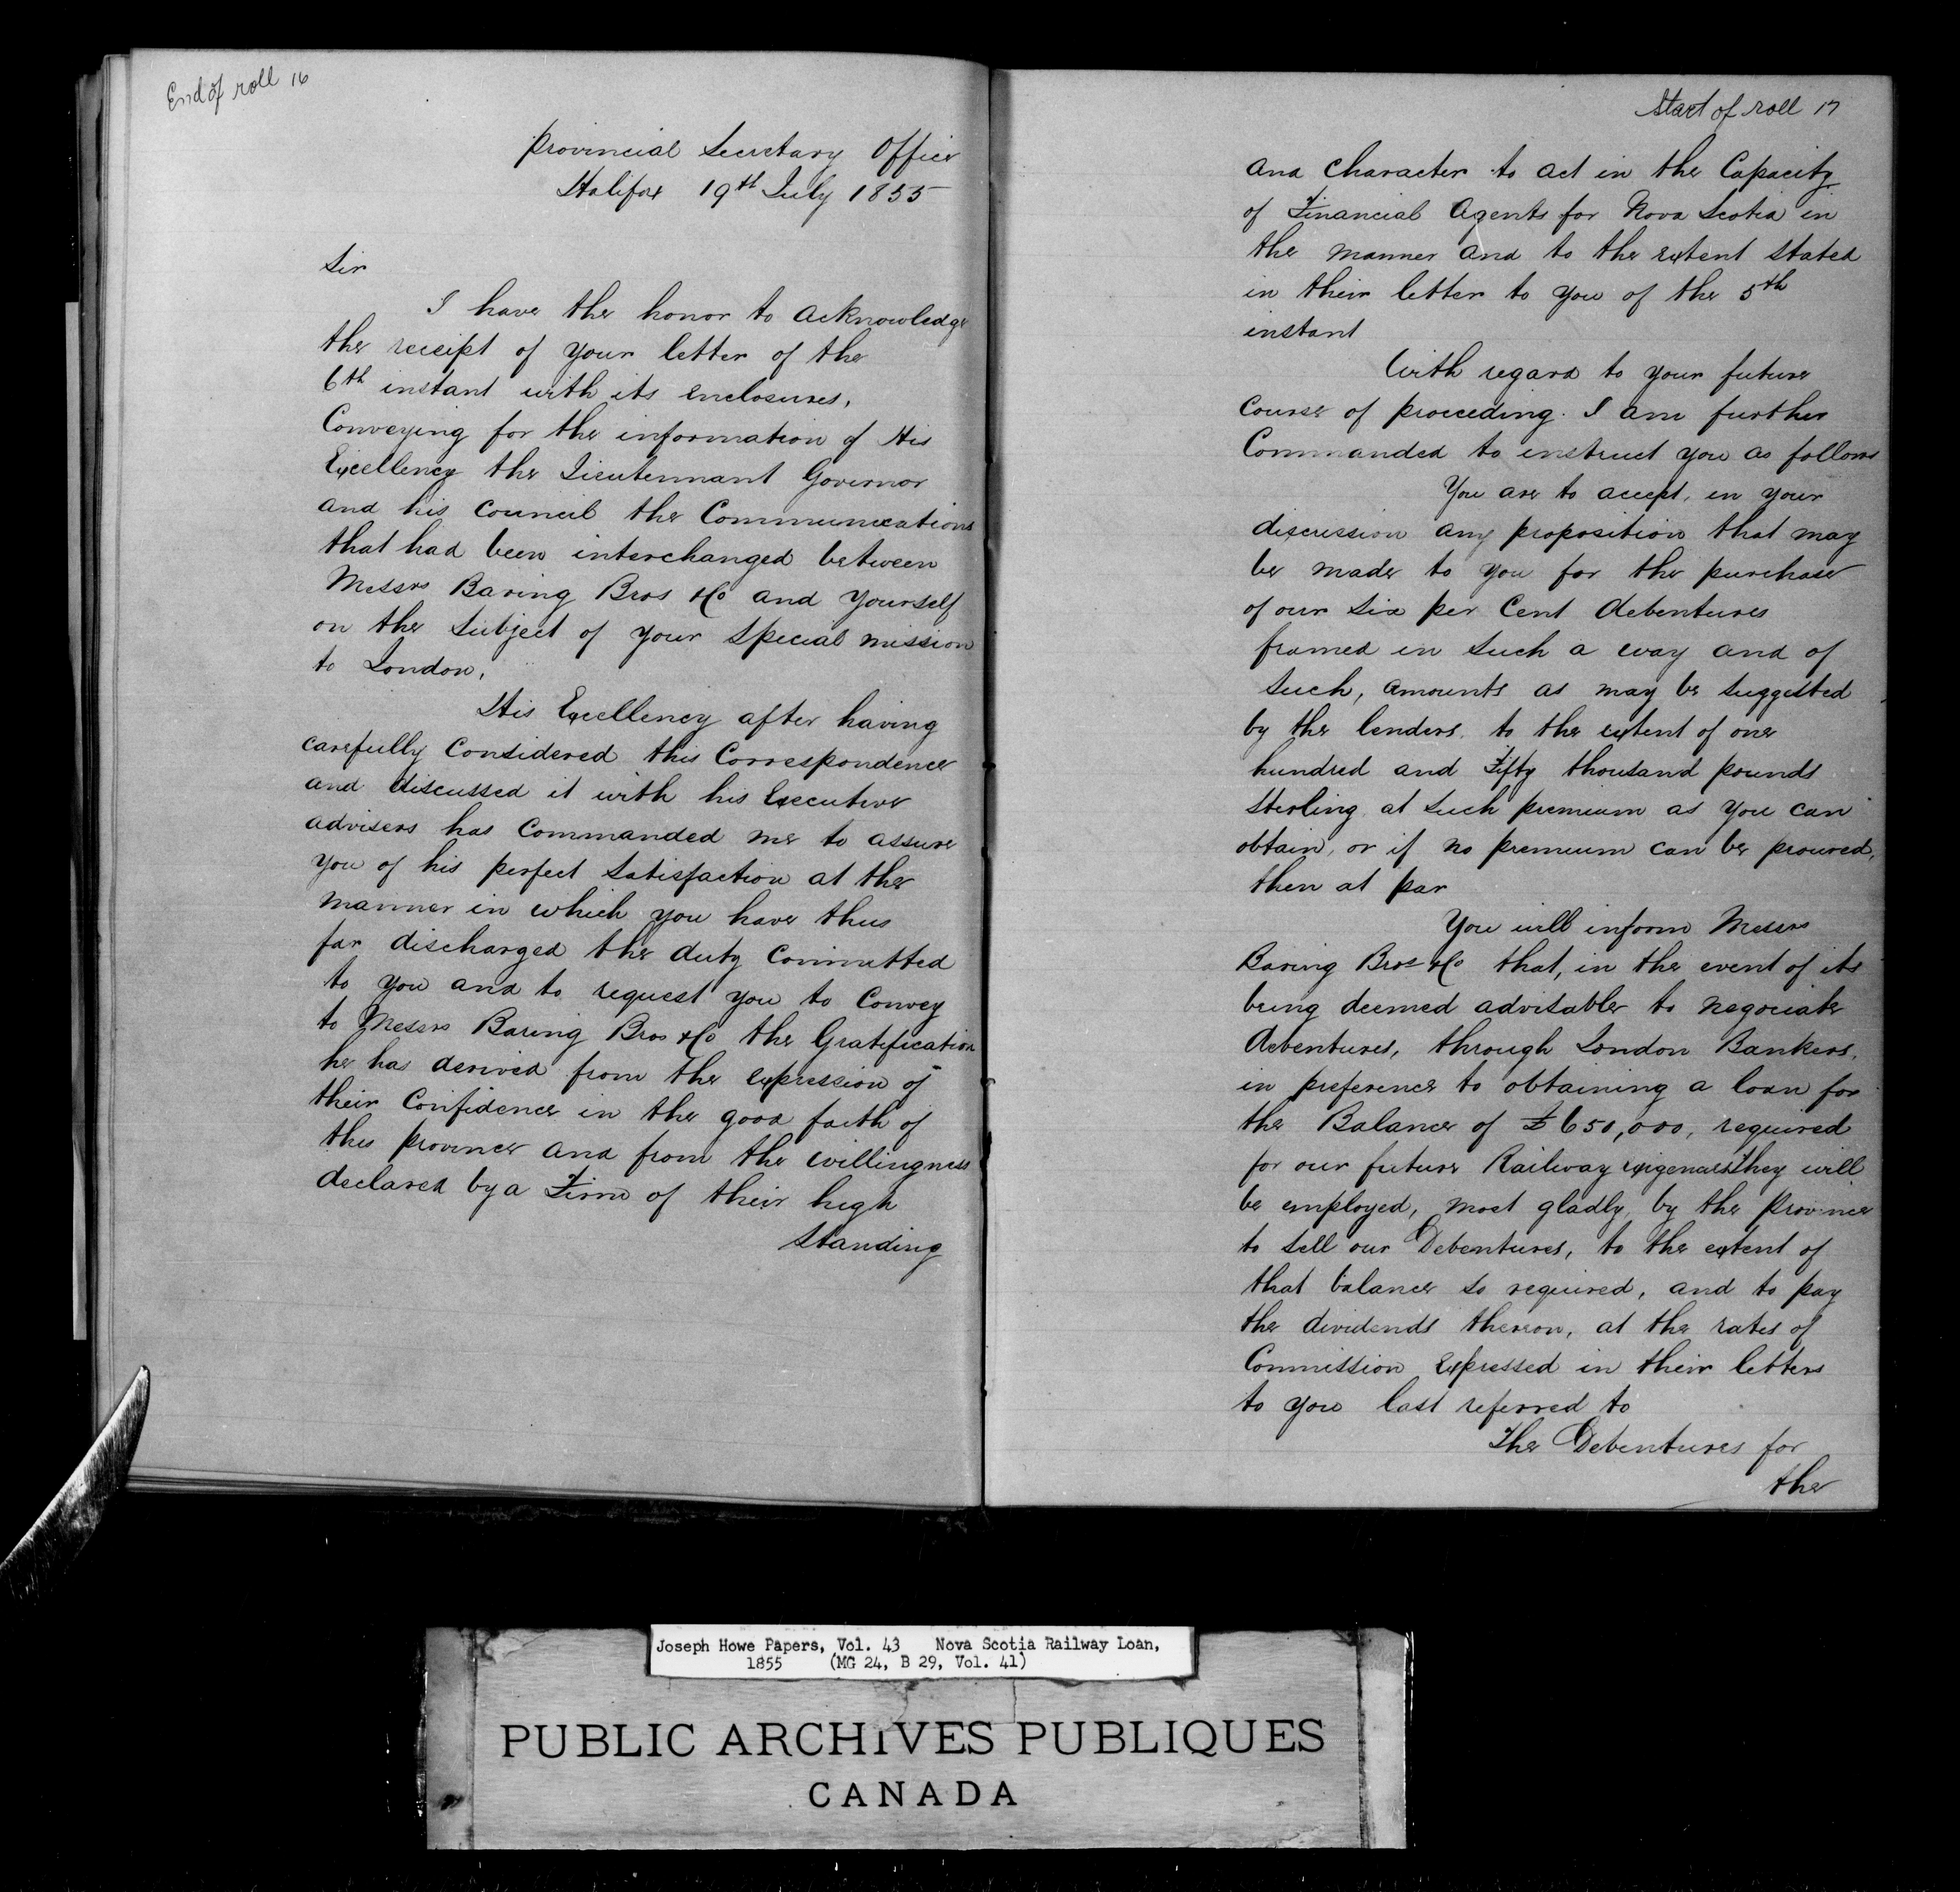 End of roll 16
Provincial Secretary Office
Halifax 19th July 1855
Sir
I have the honor to acknowledge
the receipt of your letter of the
6th instant with its enclosures,
Conveying for the information of His
Excellency the Lieutennant Governor
and his Council the Communications
that had been interchanged between
Messrs Baring Bros & Co and yourself
on the subject of your special mission
to London.
His Excellency after having
carefully Considered this Correspondence
and discussed it with his Executive
advisers has Commanded me to assure
you of his perfect Satisfaction at the
manner in which you have thus
far discharged the duty Committed
to you and to request you to Convey
to Messrs Baring Bros & Co the Gratification
he has derived from the expression of
their Confidence in the good faith of
this province and from the willingness
declared by a Firm of their high
Standing
Start of roll 17
and Character to act in the Capacity
of Financial Agents for Nova Scotia in
the manner and to the extent stated
in their letter to you of the 5th
instant
With regard to your future
Course of proceeding. I am further
Commanded to instruct you as follows
You are to accept, in your
discression any proposition that may
be made to you for the purchase
of our six per Cent debentures
framed in such a way and of
such, amounts as may be suggested
by the lenders, to the extent of one
hundred and Fifty thousand pounds
Sterling, at such premium as you can
obtain, or if no premium can be procured,
then at par
You will inform Messrs
Baring Bros & Co that, in the event of its
being deemed advisable to negociate
debentures, through London Bankers,
in preference to obtaining a loan for
the Balance of £650,000, required
for our future Railway exigencies they will
be employed, most gladly, by the Province
to sell our Debentures, to the extent of
that balance so required, and to pay
the dividends thereon, at the rates of
Commission Expressed in their letters
to you last referred to
The Debentures for
the
Joseph Howe Papers, Vol. 43 Nova Scotia Railway Loan,
1855 (MG 24, B 29, Vol. 41)
PUBLIC ARCHIVES PUBLIQUES
CANADA